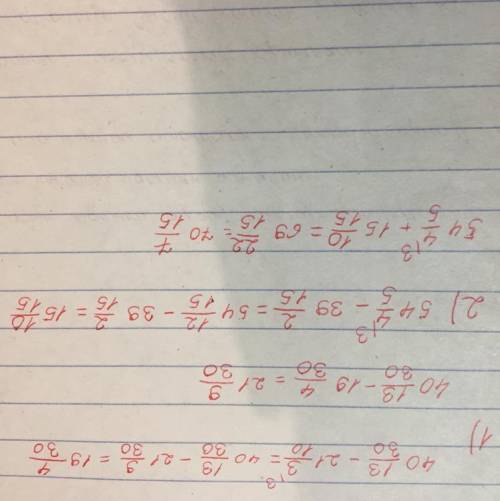 1) 40 13/30 - 21 3/10 ^13 = 40 13/30 - 21 9/30 = 19 4/30
40 13/30 - 19 4/30 = 21 9/30
2) 54 4/5 ^13 - 39 2/15 = 54 12/15 - 39 2/15 = 15 10/15
54 4/5 ^13 + 15 10/15 = 69 22/15 = 70 7/15